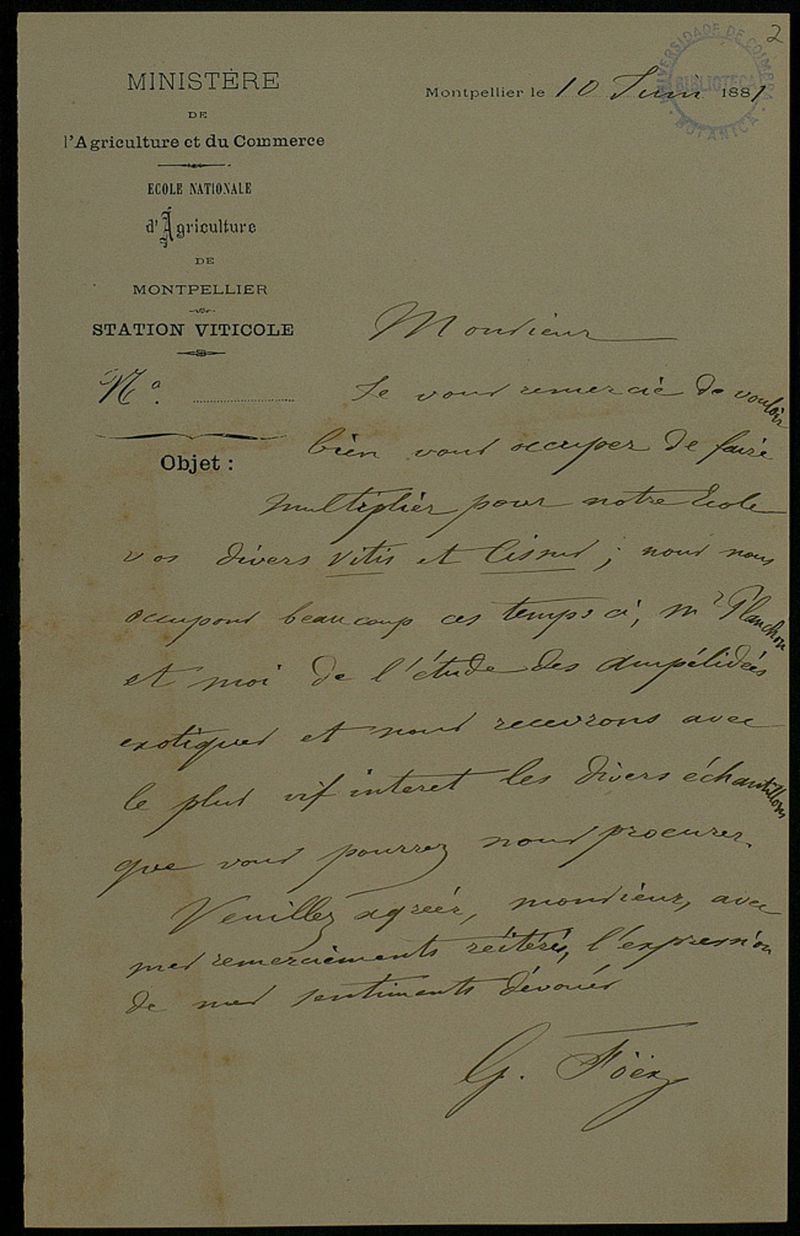 2
UNIVERSIDADE DE COIMBRA
BIBLIOTECA
BOTANICA
MINISTÈRE
DE
l'Agriculture et du Commerce
ECOLE NATIONALE
d'Agriculture
DE
MONTPELLIER
STATION VITICOLE
No.
Objet :
Montpellier le 10 Juin 1881
Monsieur
Je vous remercie de vouloir
bien vous occuper de faire
multiplier pour notre Ecole
vos divers Vitis et Cissus ; nous nous
occupons beaucoup ces temps ci, Mr Planchon
et moi de l'étude des ampélidées
exotiques et nous recevrons avec
le plus vif interet les divers échantillons
que vous pourrez nous procurer.
Veuillez agréer, monsieur, avec
mes remerciements réitérés, l'expression
de mes sentiments dévoués
G. Föex